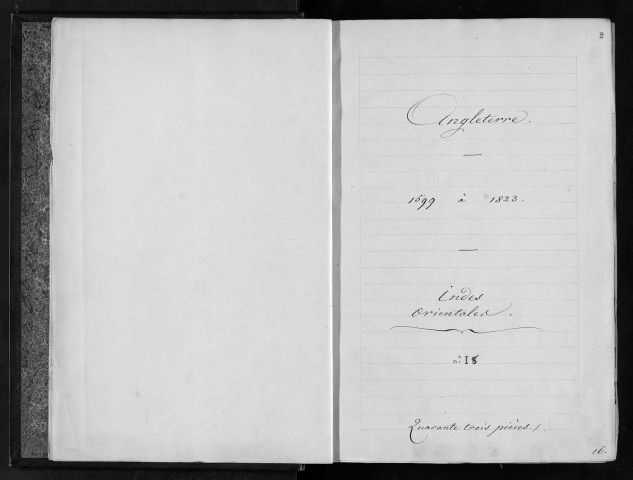 Angleterre.
1599 à 1823.
Indes
Orientales.
Quarante trois pièces./.
16.